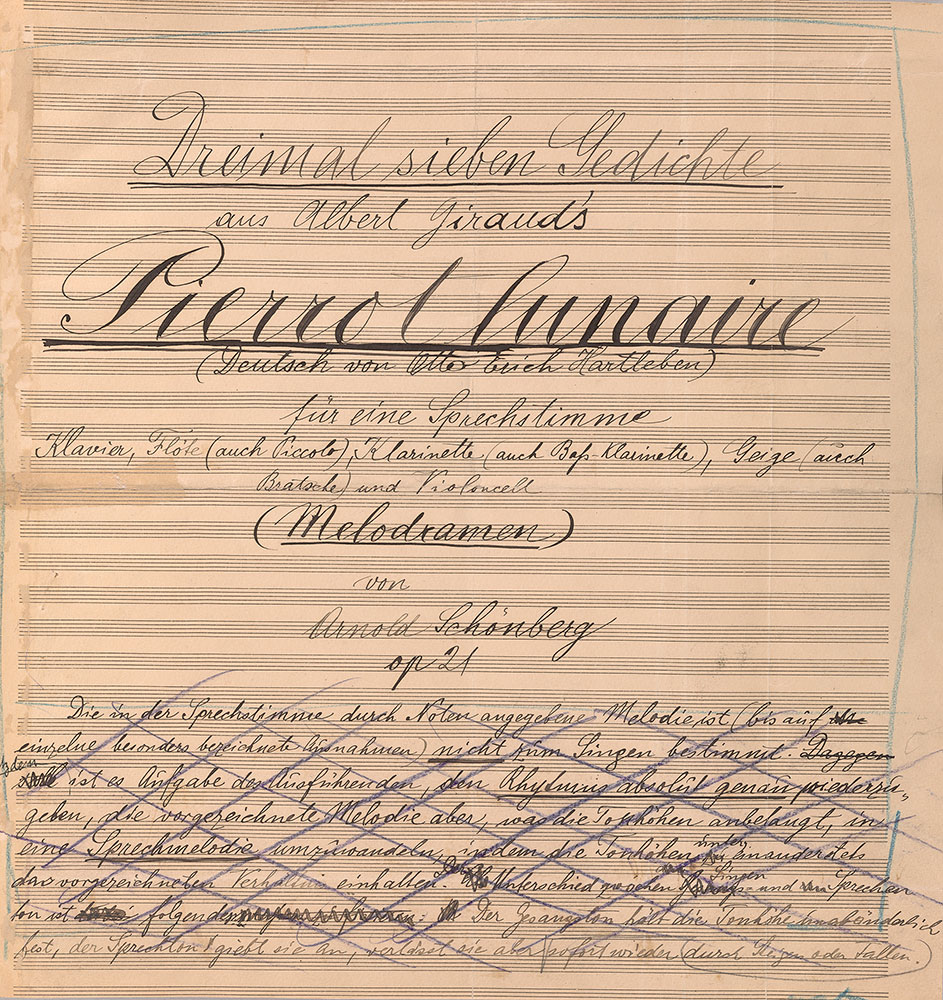 Dreimal sieben Gedichte
aus Albert Giraud's
Pierrot lunaire
(Deutsch von Otto Erich Hartleben)
für eine Sprechstimme
Klavier, Flöte (auch Piccolo), Klarinette (auch Baß-Klarinette), Geige (auch
Bratsche) und Violoncell
(Melodramen)
von
Arnold Schönberg
op 21
Die in der Sprechstimme durch Noten angegebene Melodie ist (bis auf
einzelne besonders bezeichnete Ausnahmen) nicht zum Singen bestimmt. Dagegen
ist es Aufgabe des Ausführenden, den Rhytmus absolut genau wiederzu-
geben, die vorgezeichnete Melodie aber, was die Tonhöhen anbelangt, in
eine Sprechmelodie umzuwandeln, indem die Tonhöhen unter einander stets
das vorgezeichneten Verhältnis einhalten. Der Unterschied zwischen Singen und Sprechen
ton ist folgender: Der Gesangston hält die Tonhöhe unabänderlich
fest, der Sprechton giebt sie an, verlässt sie aber sofort wieder durch Steigen oder Fallen.